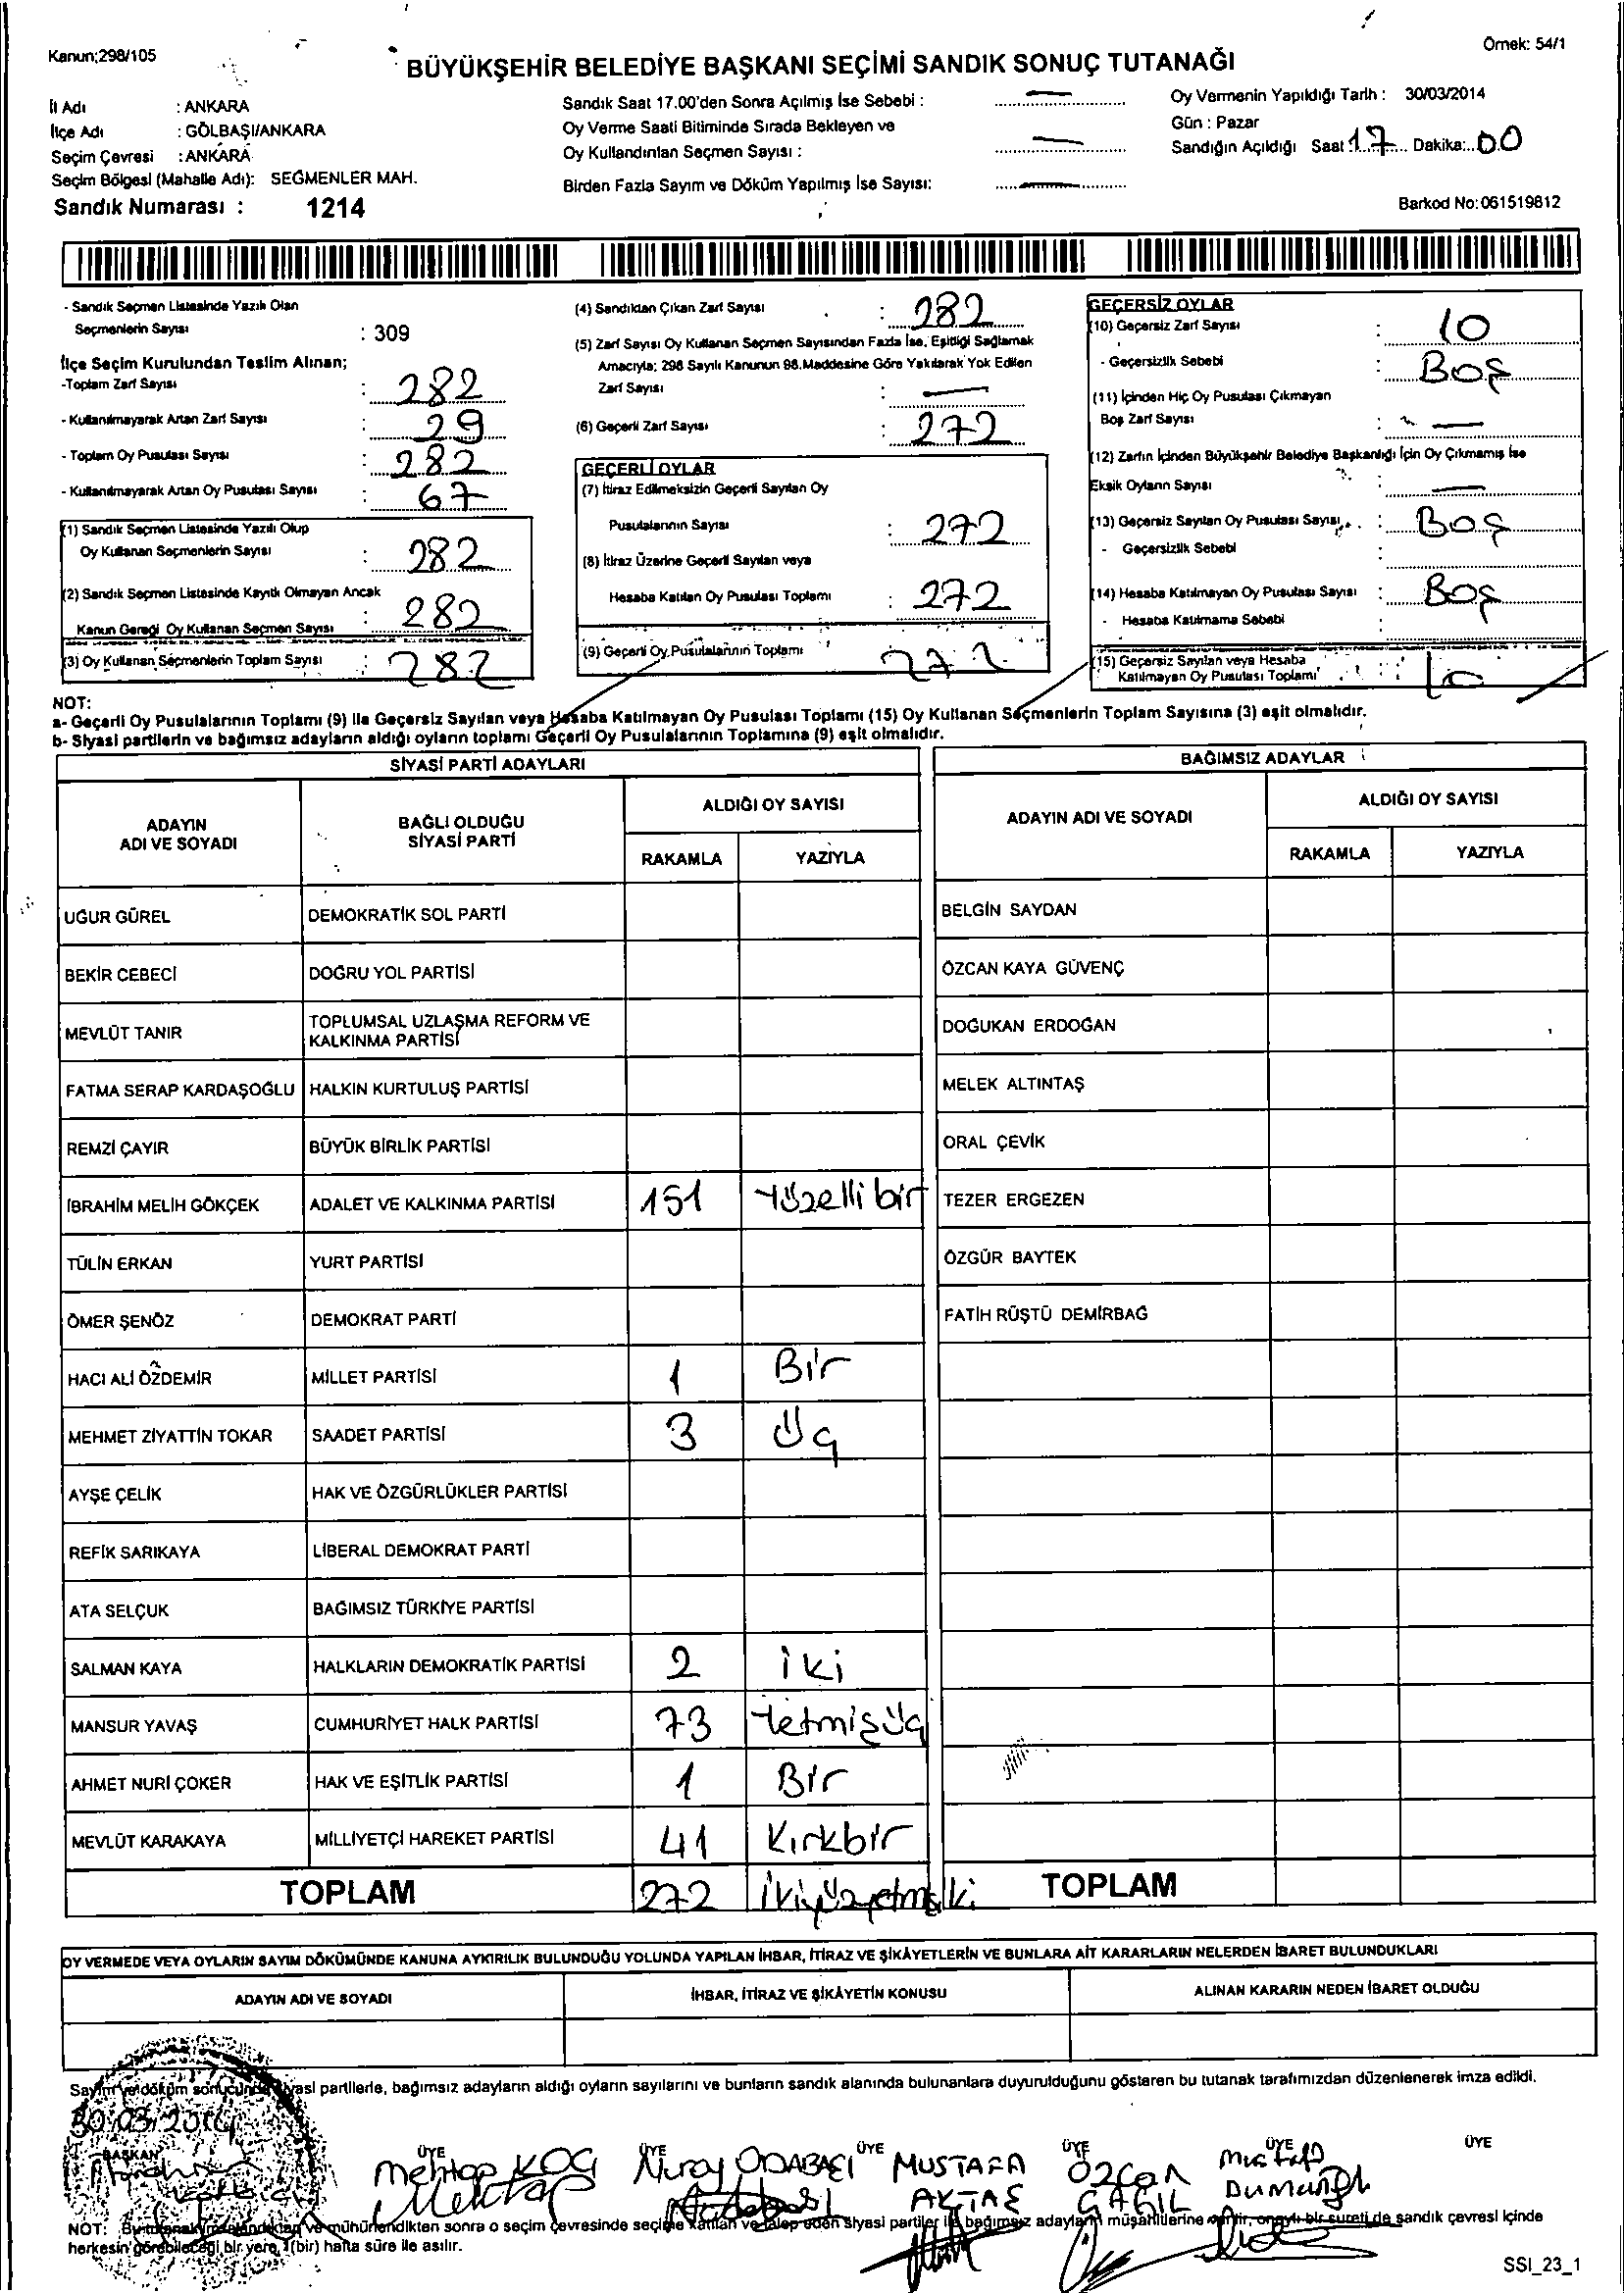 Kanun;298/105
Örnek: 54/1
BÜYÜKŞEHİR BELEDİYE BAŞKANI SEÇİMİ SANDIK SONUÇ TUTANAĞI
İl Adı : ANKARA
İlçe Adı : GÖLBAŞI/ANKARA
Seçim Çevresi : ANKARA
Seçim Bölgesi (Mahalle Adı): SEĞMENLER MAH.
Sandık Numarası : 1214
Sandık Saat 17.00'den Sonra Açılmış İse Sebebi : —
Oy Verme Saati Bitiminde Sırada Bekleyen ve
Oy Kullandırılan Seçmen Sayısı : —
Birden Fazla Sayım ve Döküm Yapılmış İse Sayısı: —
Oy Vermenin Yapıldığı Tarih : 30/03/2014
Gün : Pazar
Sandığın Açıldığı Saat 17 Dakika: 00
Barkod No: 061519812
- Sandık Seçmen Listesinde Yazılı Olan
Seçmenlerin Sayısı : 309
İlçe Seçim Kurulundan Teslim Alınan;
-Toplam Zarf Sayısı : 282
- Kullanılmayarak Artan Zarf Sayısı : 29
- Toplam Oy Pusulası Sayısı : 282
- Kullanılmayarak Artan Oy Pusulası Sayısı : 67
(1) Sandık Seçmen Listesinde Yazılı Olup
Oy Kullanan Seçmenlerin Sayısı : 282
(2) Sandık Seçmen Listesinde Kayıtlı Olmayan Ancak
Kanun Gereği Oy Kullanan Seçmen Sayısı : 282
(3) Oy Kullanan Seçmenlerin Toplam Sayısı : 282
(4) Sandıktan Çıkan Zarf Sayısı : 282
(5) Zarf Sayısı Oy Kullanan Seçmen Sayısından Fazla İse, Eşitliği Sağlamak
Amacıyla; 298 Sayılı Kanunun 98.Maddesine Göre Yakılarak Yok Edilen
Zarf Sayısı : —
(6) Geçerli Zarf Sayısı : 272
GEÇERLİ OYLAR
(7) İtiraz Edilmeksizin Geçerli Sayılan Oy
Pusulalarının Sayısı : 272
(8) İtiraz Üzerine Geçerli Sayılan veya
Hesaba Katılan Oy Pusulası Toplamı : 272
(9) Geçerli Oy Pusulalarının Toplamı 272
GEÇERSİZ OYLAR
(10) Geçersiz Zarf Sayısı : 10
- Geçersizlik Sebebi : Boş
(11) İçinden Hiç Oy Pusulası Çıkmayan
Boş Zarf Sayısı : —
(12) Zarfın İçinden Büyükşehir Belediye Başkanlığı İçin Oy Çıkmamış İse
Eksik Oyların Sayısı : —
(13) Geçersiz Sayılan Oy Pusulası Sayısı : Boş
- Geçersizlik Sebebi :
(14) Hesaba Katılmayan Oy Pusulası Sayısı : Boş
- Hesaba Katılmama Sebebi :
(15) Geçersiz Sayılan veya Hesaba
Katılmayan Oy Pusulası Toplamı : 10
NOT:
a- Geçerli Oy Pusulalarının Toplamı (9) ile Geçersiz Sayılan veya Hesaba Katılmayan Oy Pusulası Toplamı (15) Oy Kullanan Seçmenlerin Toplam Sayısına (3) eşit olmalıdır.
b- Siyasi partilerin ve bağımsız adayların aldığı oyların toplamı Geçerli Oy Pusulalarının Toplamına (9) eşit olmalıdır.
SİYASİ PARTİ ADAYLARI
ADAYIN
ADI VE SOYADI
BAĞLI OLDUĞU
SİYASİ PARTİ
ALDIĞI OY SAYISI
RAKAMLA YAZIYLA
UĞUR GÜREL DEMOKRATİK SOL PARTİ
BEKİR CEBECİ DOĞRU YOL PARTİSİ
MEVLÜT TANIR TOPLUMSAL UZLAŞMA REFORM VE
KALKINMA PARTİSİ
FATMA SERAP KARDAŞOĞLU HALKIN KURTULUŞ PARTİSİ
REMZİ ÇAYIR BÜYÜK BİRLİK PARTİSİ
İBRAHİM MELİH GÖKÇEK ADALET VE KALKINMA PARTİSİ 151 Yüzelli bir
TÜLİN ERKAN YURT PARTİSİ
ÖMER ŞENÖZ DEMOKRAT PARTİ
HACI ALİ ÖZDEMİR MİLLET PARTİSİ 1 Bir
MEHMET ZİYATTİN TOKAR SAADET PARTİSİ 3 Üç
AYŞE ÇELİK HAK VE ÖZGÜRLÜKLER PARTİSİ
REFİK SARIKAYA LİBERAL DEMOKRAT PARTİ
ATA SELÇUK BAĞIMSIZ TÜRKİYE PARTİSİ
SALMAN KAYA HALKLARIN DEMOKRATİK PARTİSİ 2 iki
MANSUR YAVAŞ CUMHURİYET HALK PARTİSİ 73 Yetmişüç
AHMET NURİ ÇOKER HAK VE EŞİTLİK PARTİSİ 1 Bir
MEVLÜT KARAKAYA MİLLİYETÇİ HAREKET PARTİSİ 41 Kırkbir
TOPLAM 272
BAĞIMSIZ ADAYLAR
ADAYIN ADI VE SOYADI
ALDIĞI OY SAYISI
RAKAMLA YAZIYLA
BELGİN SAYDAN
ÖZCAN KAYA GÜVENÇ
DOĞUKAN ERDOĞAN
MELEK ALTINTAŞ
ORAL ÇEVİK
TEZER ERGEZEN
ÖZGÜR BAYTEK
FATİH RÜŞTÜ DEMİRBAĞ
TOPLAM
OY VERMEDE VEYA OYLARIN SAYIM DÖKÜMÜNDE KANUNA AYKIRILIK BULUNDUĞU YOLUNDA YAPILAN İHBAR, İTİRAZ VE ŞİKÂYETLERİN VE BUNLARA AİT KARARLARIN NELERDEN İBARET BULUNDUKLARI
ADAYIN ADI VE SOYADI
İHBAR, İTİRAZ VE ŞİKÂYETİN KONUSU
ALINAN KARARIN NEDEN İBARET OLDUĞU
Sayım ve döküm sonucunda siyasi partilerle, bağımsız adayların aldığı oyların sayılarını ve bunların sandık alanında bulunanlara duyurulduğunu gösteren bu tutanak tarafımızdan düzenlenerek imza edildi.
30.03.2014
BAŞKAN ÜYE ÜYE ÜYE ÜYE ÜYE ÜYE
Mehtap KOÇ Nuray ODABAŞI MUSTAFA AKTAŞ Özcan Mustafa
NOT: Bu tutanak ve mühürlendikten sonra o seçim çevresinde seçime katılan ve talep eden siyasi partiler ile bağımsız adayların müşahitlerine verilir, onaylı bir sureti de sandık çevresi içinde
herkesin görebileceği bir yere, 1(bir) hafta süre ile asılır.
SSI_23_1